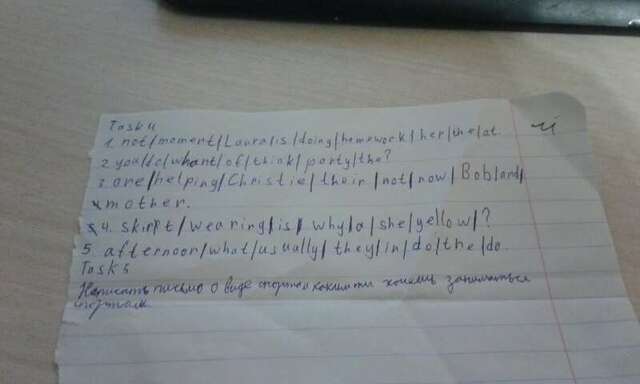 Task 4
1. not/moment/Laura/is/doing/homework/her/the/at.
2 you/do/what/of/think/party/the?
3. are/helping/Christie/their/not/now/Bob/and/
mother.
4. skirt/wearing/is/why/a/she/yellow/?
5. afternoon/what/usually/they/in/do/the/do.
Task 5
Написать письмо о виде спорта каким ты хочешь заниматься
спортом